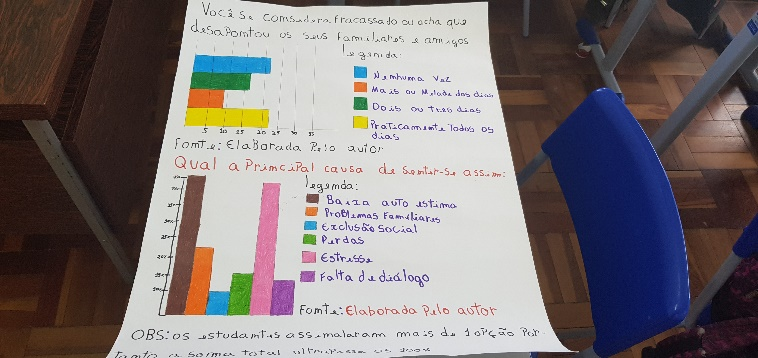 Você se considera fracassado ou acha que
desapontou os seus familiares e amigos
legenda:
Nenhuma vez
Mais ou Metade dos dias
Dois ou tres dias
Praticamente todos os
dias
5 10 15 20 25 30 35
Fonte: Elaborada Pelo autor
Qual a Principal causa de Sentir-se assim:
legenda:
Baixa auto estima
Problemas Familiares
Exclusão social
Perdas
Estresse
Falta de diálogo
Fonte: Elaborada Pelo autor
OBS: os estudantes assinalaram mais de 1 opção Por
tanto a soma total ultrapassa